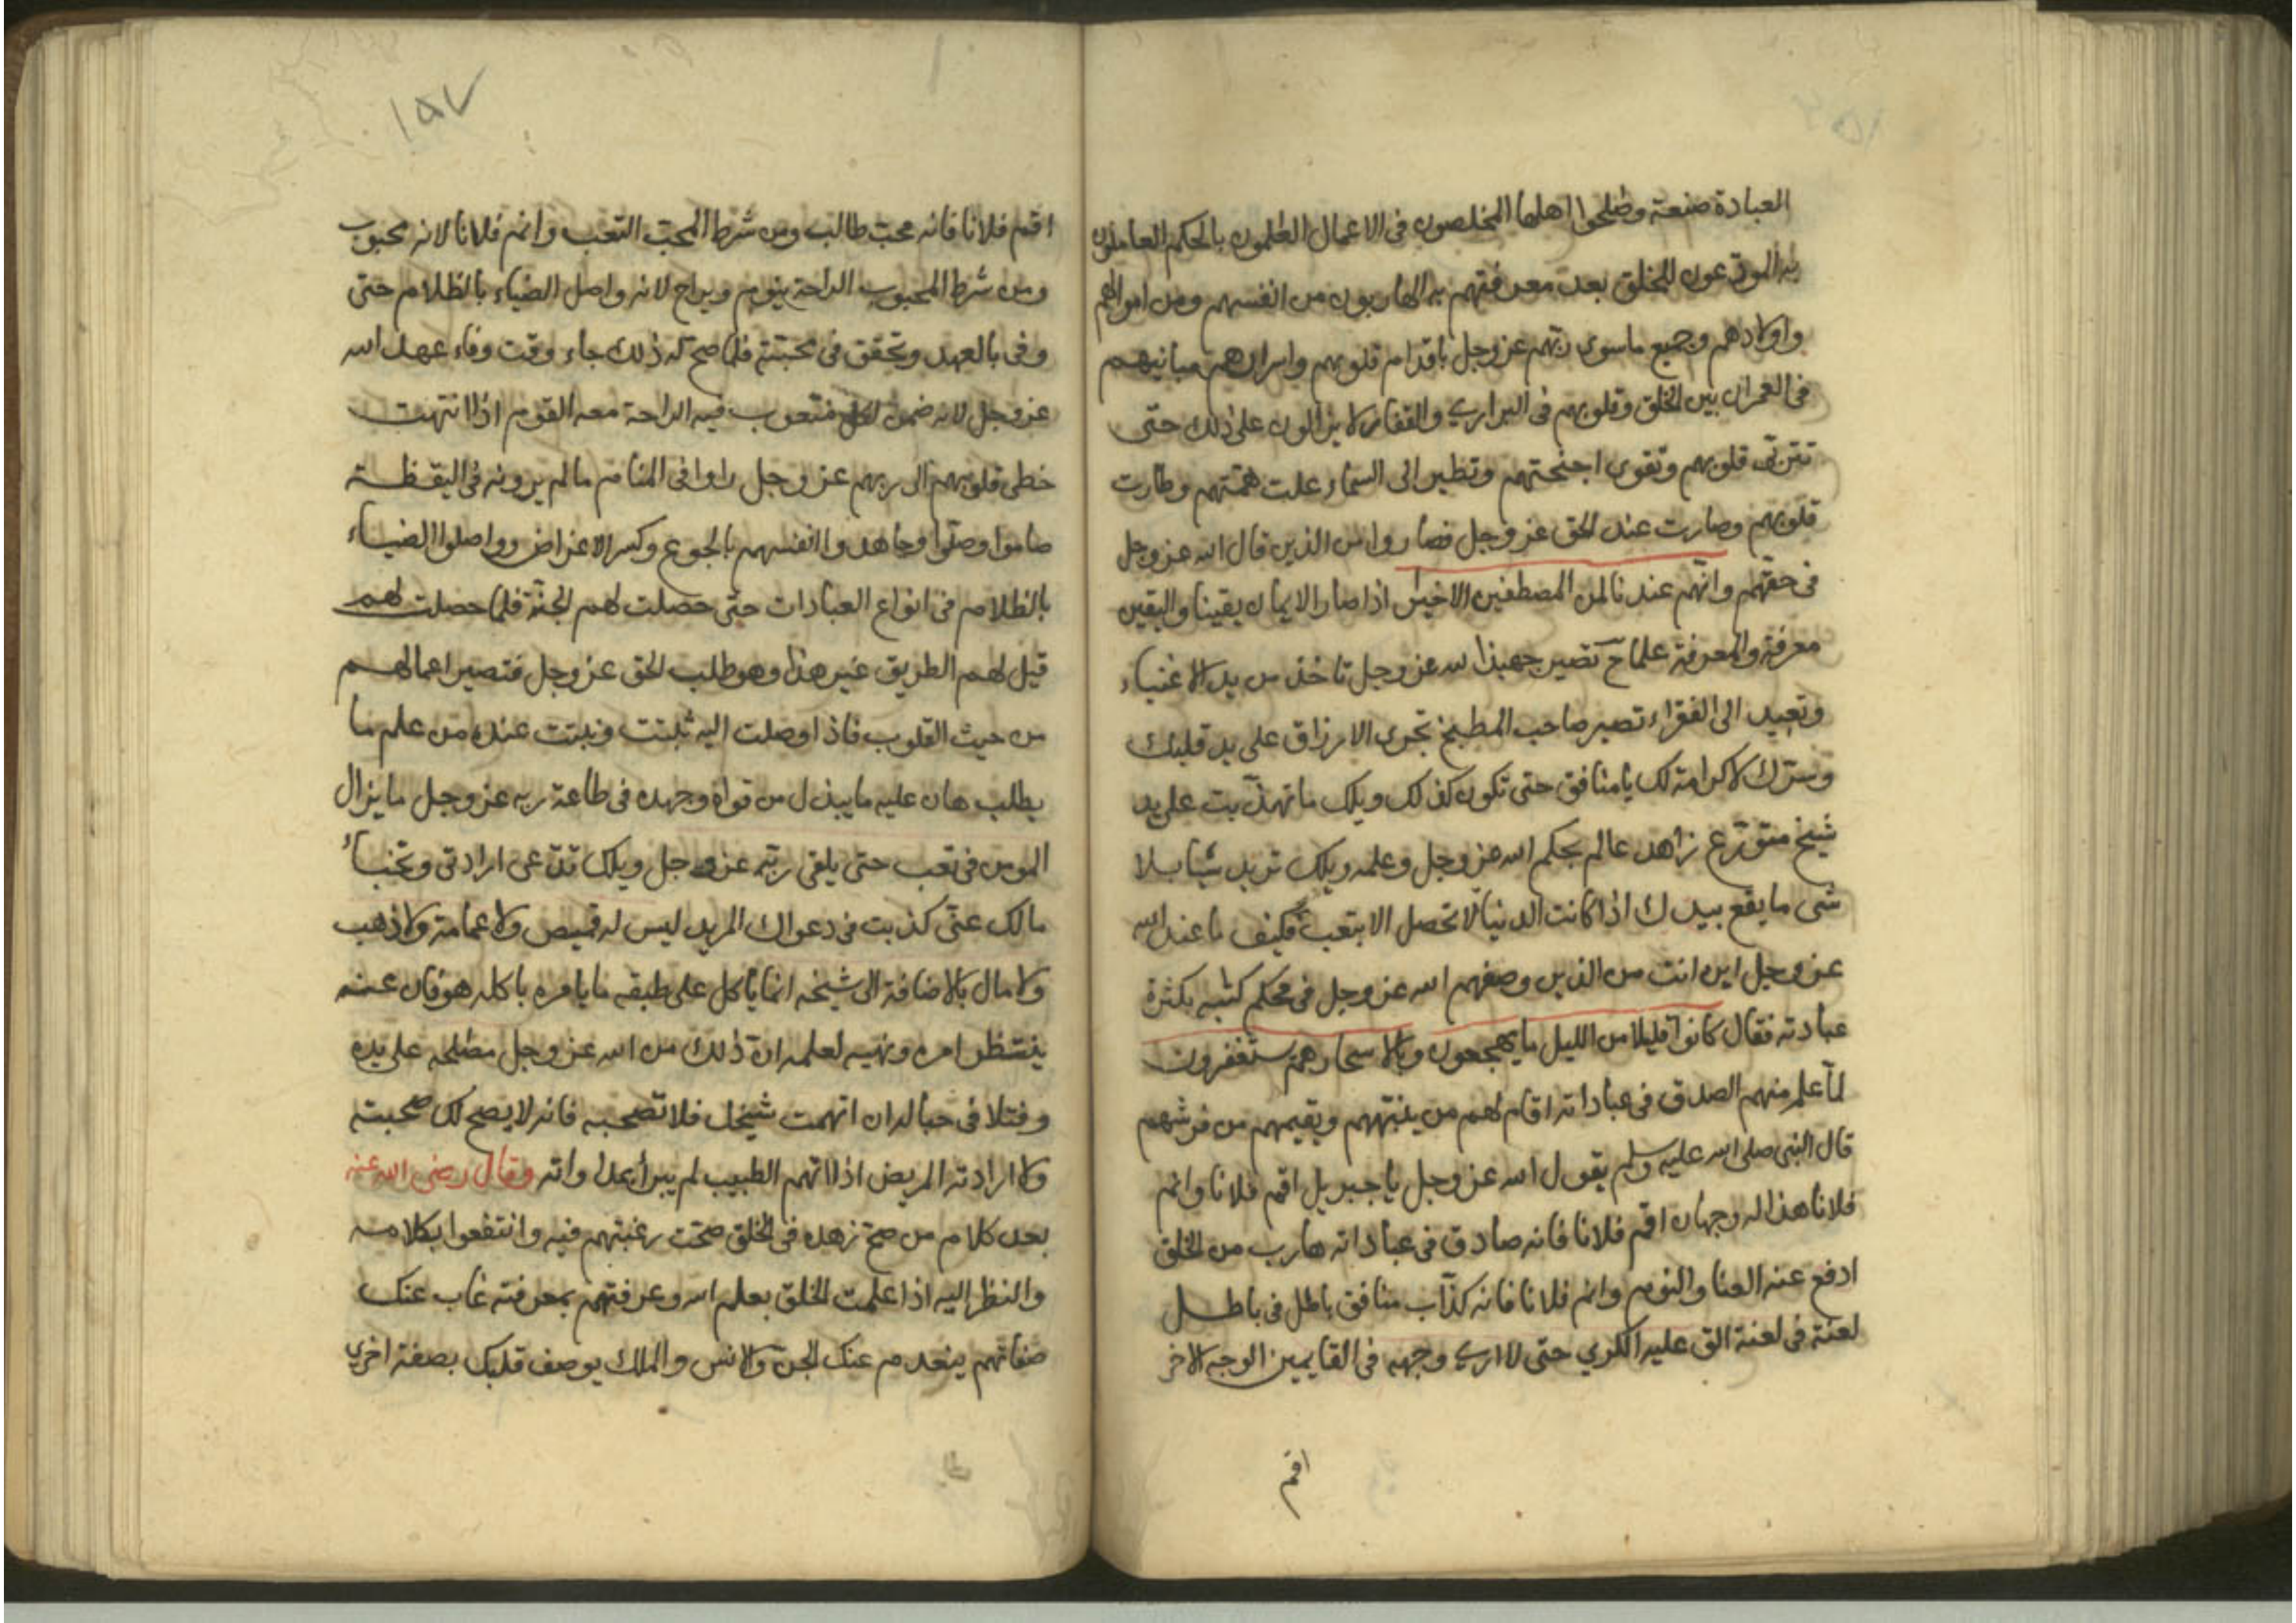 العبادة صنعة وصلحوا اهلها المخلصون فى الاعمال العلمون بالحكم العاملون
به المودعون للخلق بعد معرفتهم به الهاربون من انفسهم ومن اموالهم
واولادهم وجميع ماسوى ربهم عز وجل باقدام قلوبهم واسرارهم مبانيهم
فى العمران بين الخلق وقلوبهم فى البرارى والقفار لا يزالون على ذلك حتى
تتربى قلوبهم وتقوى اجنحتهم وتطير الى السماء علت همتهم وطارت
قلوبهم وصارت عند الحق عز وجل فصاروا من الذين قال الله عز وجل
فى حقهم وانهم عندنا لمن المصطفين الاخيار اذا صار الايمان يقينا واليقين
معرفة والمعرفة علما ح تصير جهبذا لله عز وجل تاخذ من يد الاغنياء
وتعيد الى الفقراء تصير صاحب المطبخ تجرى الارزاق على يد قلبك
وسرك لا كرامة لك يا منافق حتى تكون كذلك ويلك ما تهذبت على يد
شيخ متورع زاهد عالم بحكم الله عز وجل وعلمه ويلك تريد شيا بلا
شى ما يقع بيدك اذا كانت الدنيا لا تحصل الا بتعب فكيف ما عند الله
عز وجل اين انت من الذين وصفهم الله عز وجل فى محكم كتبه بكثرة
عبادته فقال كانوا قليلا من الليل ما يهجعون وبالاسحار هم يستغفرون
لما علم منهم الصدق فى عباداته اقام لهم من ينبههم ويقيمهم من فرشهم
قال النبى صلى الله عليه وسلم يقول الله عز وجل يا جبريل اقم فلانا وانم
فلانا هذا له وجهان اقم فلانا فانه صادق فى عباداته هارب من الخلق
ادفع عنه العنا والنوم وانم فلانا فانه كذاب منافق باطل فى باطل
لعنة فى لعنة الق عليه الكرى حتى لا ارى وجهه فى القايمين الوجه الاخر
اقم
١٥٧
اقم فلانا فانه محب طالب ومن شرط المحب التعب وانم فلانا لانه محبوب
ومن شرط المحبوب الراحة ينوم ويراح لانه واصل الضياء بالظلام حتى
وفى بالعهد وتحقق فى محبته فلما صح له ذلك جاء وقت وفاء عهد الله
عز وجل لانه ضمن لكل متعوب فيه الراحة معه القوم اذا انتهت
خطى قلوبهم الى ربهم عز وجل راوا فى المنام ما لم يرونه فى اليقظة
صاموا وصلوا وجاهدوا انفسهم بالجوع وكسر الاعراض وواصلوا الضياء
بالظلام فى انواع العبادات حتى حصلت لهم الجنة فلما حصلت لهم
قيل لهم الطريق غير هذا وهو طلب الحق عز وجل فتصير اعمالهم
من حيث القلوب فاذا وصلت اليه ثبتت ونبتت عنده من علم ما
يطلب هان عليه ما يبذل من قواه وجهده فى طاعة ربه عز وجل ما يزال
المومن فى تعب حتى يلقى ربه عز وجل ويلك تدعى ارادتى وتخبأ
مالك عنى كذبت فى دعواك المريد ليس له قميص ولا عمامة ولا ذهب
ولا مال بالاضافة الى شيخه انما ياكل على طبقه ما يامره باكله هو فان عنه
ينتظر امره ونهيه لعلمه ان ذلك من الله عز وجل مصلحه على يده
وفتلا فى حباله ان اتهمت شيخك فلا تصحبه فانه لا يصح لك صحبته
ولا ارادته المريض اذا اتهم الطبيب لم يبرأ بمداواته وقال رضى الله عنه
بعد كلام من صح زهده فى الخلق صحت رغبتهم فيه وانتفعوا بكلامه
والنظر اليه اذا علمت الخلق بعلم الله وعرفتهم بمعرفته غاب عنك
صفاتهم ينعدم عنك الجن والانس والملك يوصف قلبك بصفة اخرى